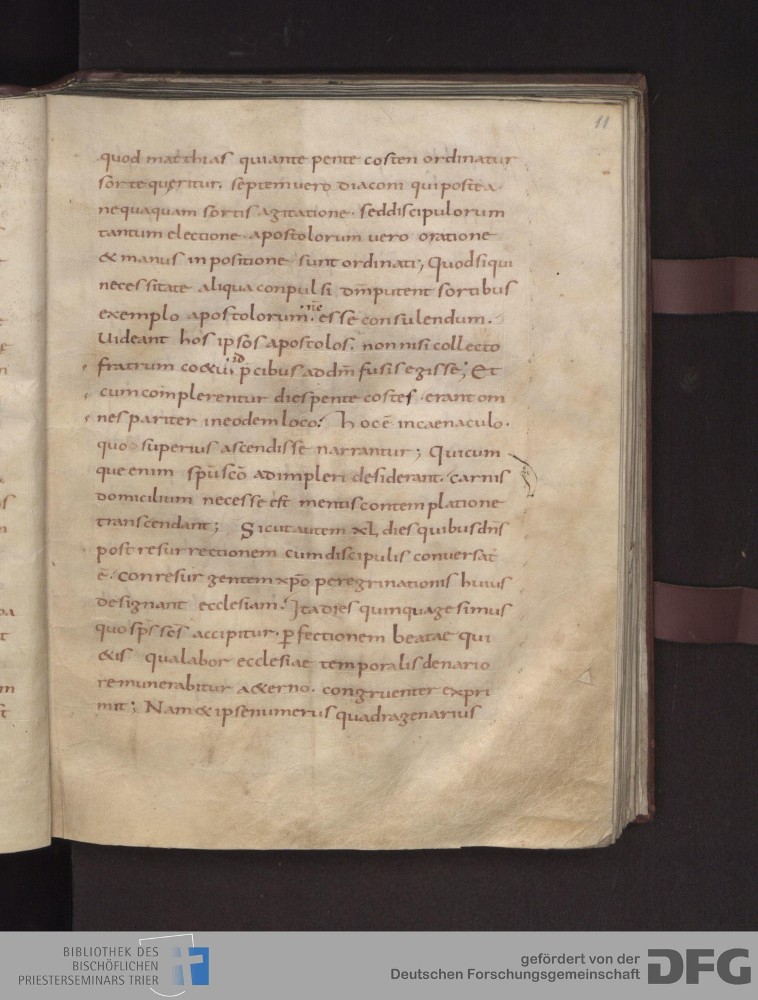 11
quod matthias qui ante pente costen ordinatur
sorte quęritur. septem uero diaconi qui postea.
nequaquam sortis agitatione. sed discipulorum
tantum electione. apostolorum uero oratione
& manus inpositione sunt ordinati; Quodsiqui
necessitate aliqua conpulsi dm̄ putent sortibus
exemplo apostolorum. esse consulendum.
Uideant hos ipsos apostolos. non nisi collecto
fratrum co&u. id p̄cibus ad dm̄ fusis egisse; Et
cum complerentur dies pente costes. erant om
nes pariter in eodem loco; hoc ē in caenaculo.
quo superius ascendisse narrantur; Quicum
que enim spūsc̄o adimpleri desiderant. carnis
domicilium necesse est mentis contemplatione
transcendant; Sicut autem xl dies quibus dn̄s
post resurrectionem cum discipulis conuersat
ē. conresurgentem xp̄o peregrinationis huius
designant ecclesiam. Ita dies quinquagesimus
quo sp̄s sc̄s accipitur. ꝑfectionem beatae qui
&is qua labor ecclesiae temporalis denario
remunerabitur a&erno. congruenter expri
mit; Nam & ipse numerus quadragenarius
BIBLIOTHEK DES
BISCHÖFLICHEN
PRIESTERSEMINARS TRIER
gefördert von der
Deutschen Forschungsgemeinschaft
DFG